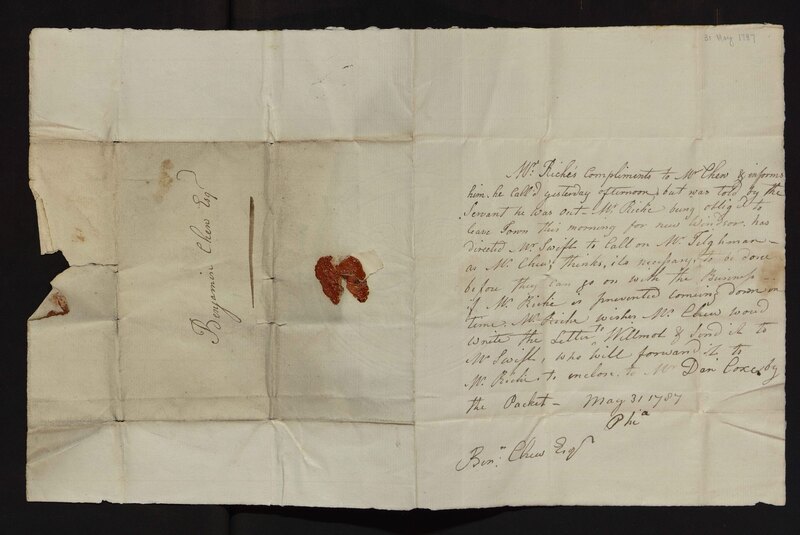 31 May 1787
Benjamin Chew Esqr
Mr. Riché's Compliments to Mr Chew & informs
him, he call'd yesterday afternoon, but was told by the
Servant he was out - Mr. Riché being oblig'd to
leave Town this morning for new Windsor, has
directed Mr. Swift to Call on Mr. Tilghman -
as Mr. Chew, thinks, its necessary to be done
before they can go on with the Business -
if Mr. Riché is prevented coming down in
time, Mr. Riché wishes Mr. Chew would
write the Letter to Willmot & send it to
Mr Swift, who will forward it to
Mr. Riché, to enclose, to Mr Dan Coxe by
the Packet - May 31 1787
Phia
Benn. Chew Esqr